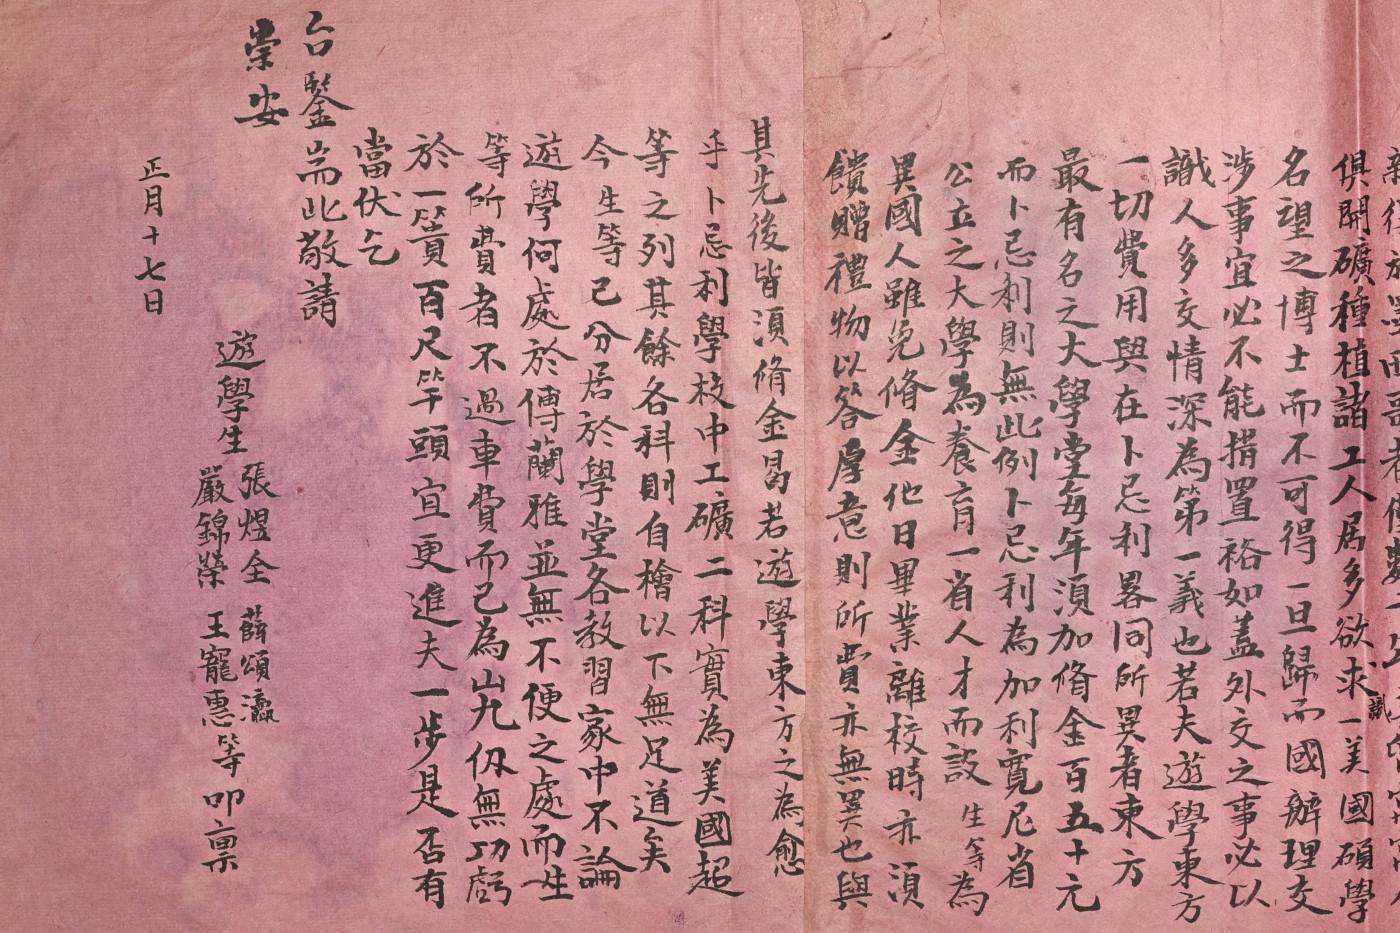 俱開礦種植諸工人居多欲求一美國碩學
名望之博士而不可得一旦歸而國辦理交
涉事宜必不能措置裕如蓋外交之事必以
識人多交情深為第一義也若夫遊學東方
一切費用與在卜忌利畧同所異者東方
最有名之大學堂每年須加脩金百五十元
而卜忌利則無此例卜忌利為加利寬尼省
公立之大學為養育一省人才而設生等為
異國人雖免脩金他日畢業離校時亦須
饋贈禮物以答厚意則所費亦無異也與
其先後皆須脩金曷若遊學東方之為愈
乎卜忌利學校中工礦二科實為美國超
等之列其餘各科則自檜以下無足道矣
今生等已分居於學堂各教習家中不論
遊學何處於傅蘭雅並無不便之處而生
等所費者不過車費而已為山九仭無功虧
於一簣百尺竿頭宜更進夫一步是否有
當伏乞
台鑒耑此敬請
崇安
遊學生 張煜全 薛頌瀛
嚴錦榮 王寵惠等叩稟
正月十七日